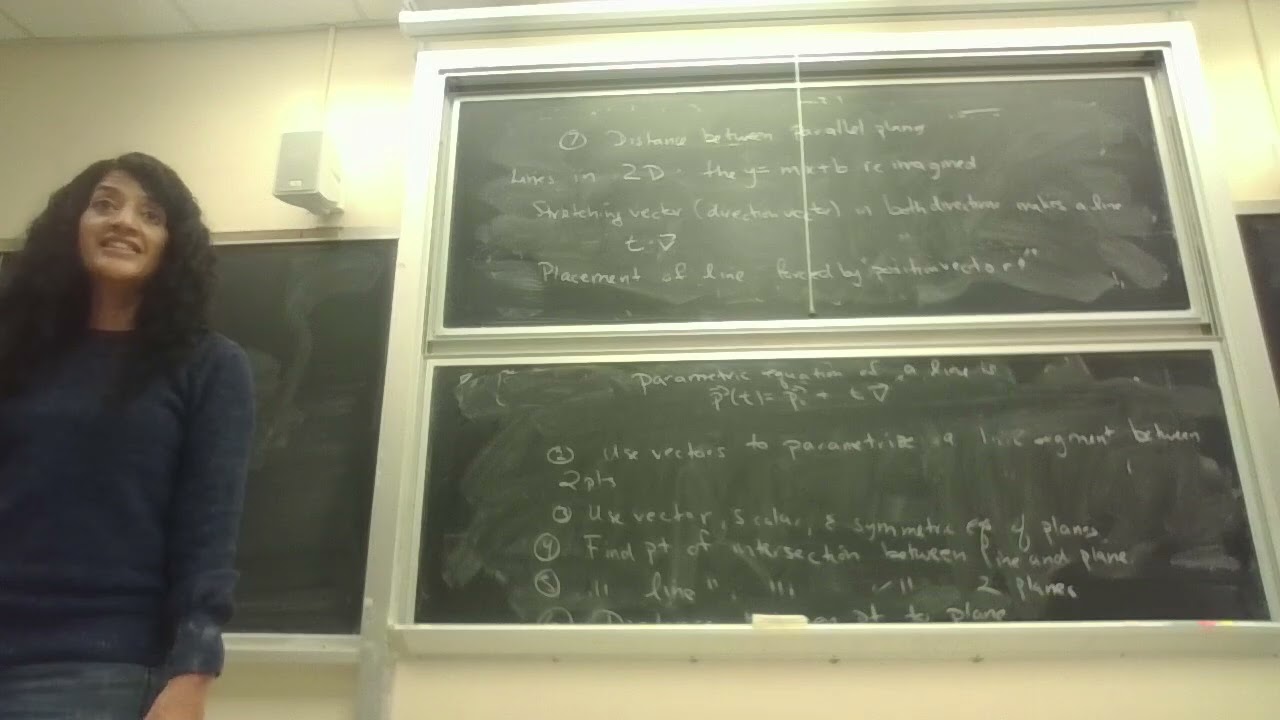 ⑦ Distance between parallel planes
Lines in 2D. the y=mx+b reimagined
Stretching vector (direction vector) in both directions makes a line
t·∇
Placement of line forced by "position vector"
parametric equation of a line is
p⃗(t)= p⃗ + t∇
② Use vectors to parametrize a line segment between
2pts
③ Use vector, scalar, & symmetric eqs of planes.
④ Find pt of intersection between line and plane
⑤ " line " " " 2 planes
pt to plane